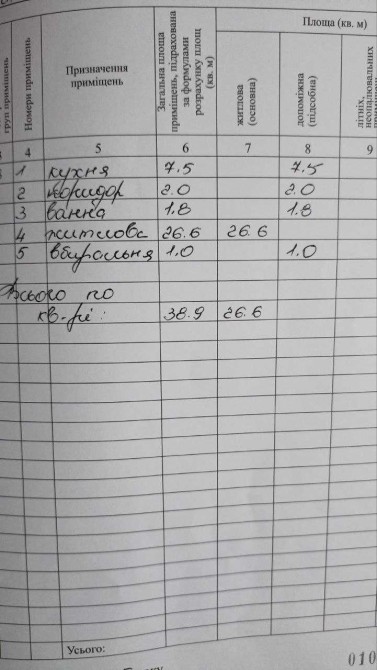 Площа (кв. м)
груп приміщень
Номери приміщень
Призначення
приміщень
Загальна площа
приміщень, підрахована
за формулами
розрахунку площ
(кв. м)
житлова
(основна)
допоміжна
(підсобна)
літніх,
неопалювальних
4 5 6 7 8 9
1 кухня 7.5 7.5
2 коридор 2.0 2.0
3 ванна 1.8 1.8
4 житлова 26.6 26.6
5 вбиральня 1.0 1.0
Всього по
кв-рі: 38.9 26.6
Усього:
010